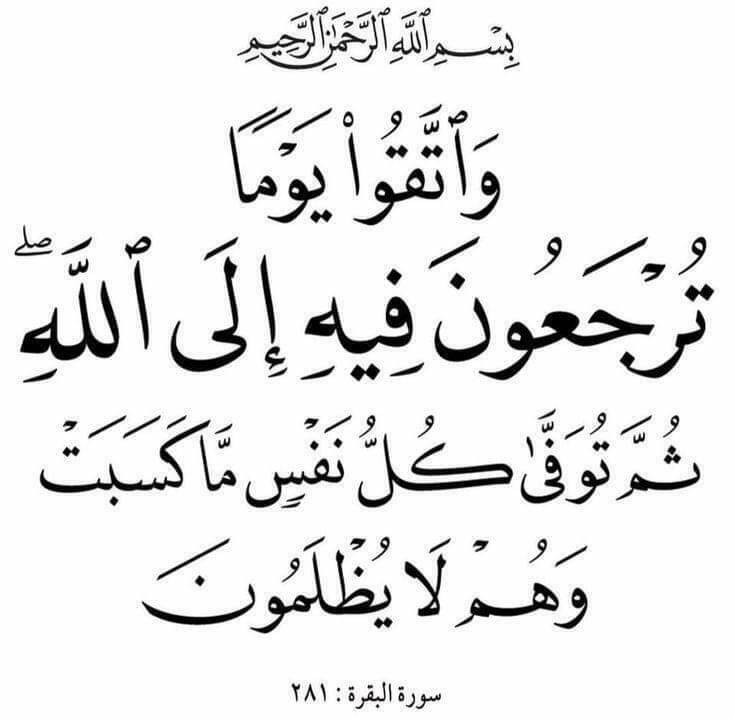 بِسْمِ ٱللَّهِ ٱلرَّحْمَٰنِ ٱلرَّحِيمِ
وَٱتَّقُوا۟ يَوْمًا
تُرْجَعُونَ فِيهِ إِلَى ٱللَّهِ ۖ
ثُمَّ تُوَفَّىٰ كُلُّ نَفْسٍ مَّا كَسَبَتْ
وَهُمْ لَا يُظْلَمُونَ
سورة البقرة : ٢٨١